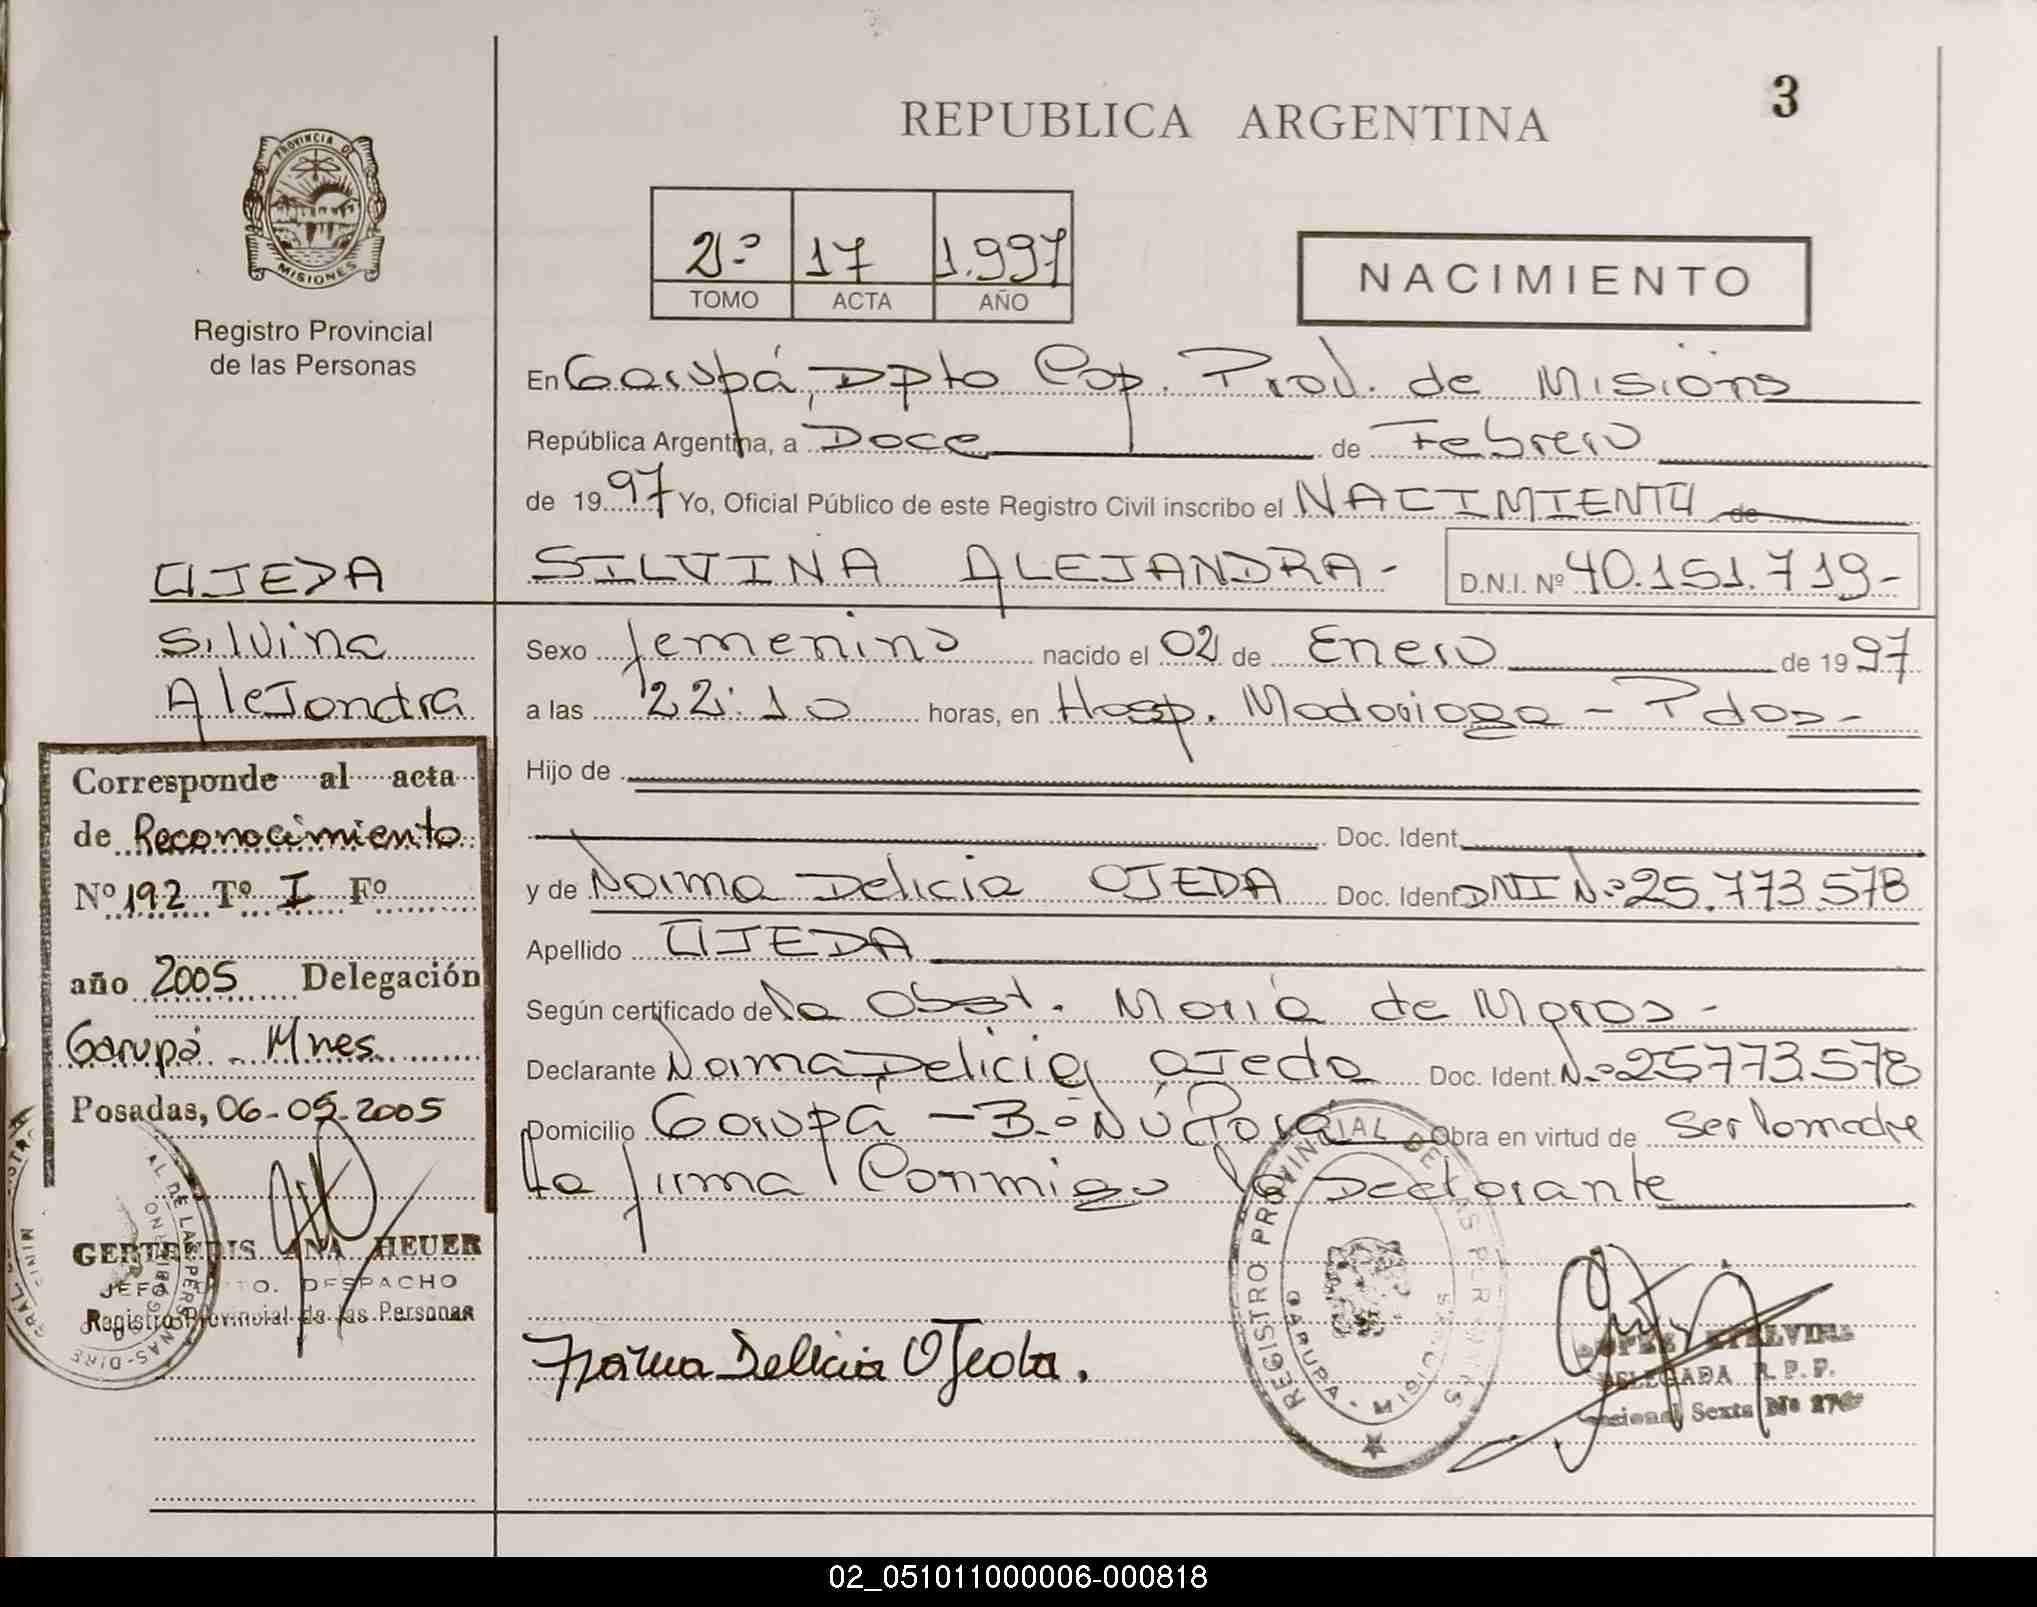 3
REPUBLICA ARGENTINA
PROVINCIA DE
MISIONES
Registro Provincial
de las Personas
2º 17 1.997
TOMO ACTA AÑO
NACIMIENTO
En Garupá, Dpto Cap. Prov. de Misions
República Argentina, a Doce de Febrero
de 1997 Yo, Oficial Público de este Registro Civil inscribo el NACIMIENTO de
SILVINA ALEJANDRA- D.N.I. Nº 40.151.719-
Sexo femenino nacido el 02 de Enero de 1997
a las 22:10 horas, en Hosp. Madariaga - Pdas-
Hijo de
Doc. Ident.
y de Norma Delicia OJEDA Doc. Ident DNI Nº 25.773.578
Apellido OJEDA
Según certificado de la Obst. María de Moros-
Declarante Norma Delicia OJeda Doc. Ident. Nº 25773.578
Domicilio Garupá - Bº Ñú Porá Obra en virtud de Ser la madre
La firma Conmigo la Declarante
Norma Delicia OJeda.
REGISTRO PROVINCIAL DE LAS PERSONAS
GARUPA - MISIONES
LOPEZ ETELVINA
DELEGADA R. P. P.
Sexta Nº 276
OJEDA
Silvina
AleJandra
Corresponde al acta
de Reconocimiento
Nº 192 Tº I Fº
año 2005 Delegación
Garupá - Mnes
Posadas, 06-05-2005
GERTRUDIS ANA HEUER
JEFE DPTO. DESPACHO
Registro Provincial de las Personas
02_051011000006-000818